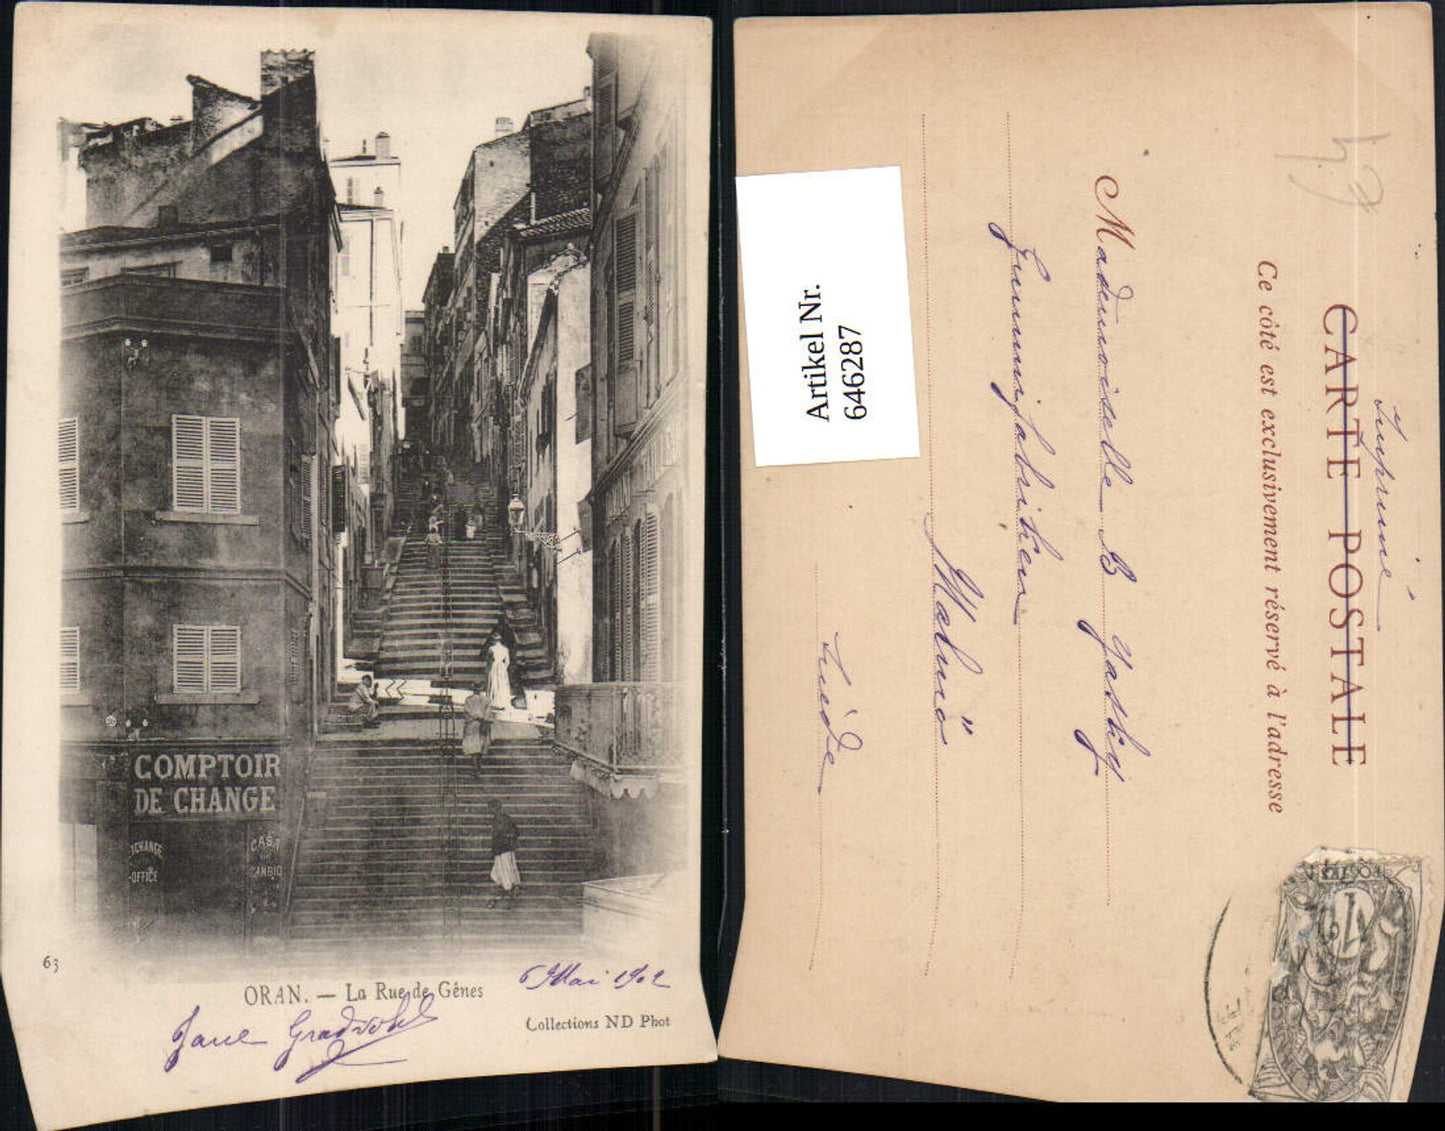 COMPTOIR
DE CHANGE
XCHANGE
OFFICE
CASA
DE
CAMBIO
63
ORAN. — La Rue de Gênes
6 Mai 1902
Collections ND Phot
Jane
Imprimé
CARTE POSTALE
Ce côté est exclusivement réservé à l'adresse
Mademoiselle B
Gummifabriken
Malmö
Suède
Artikel Nr.
646287
POSTES